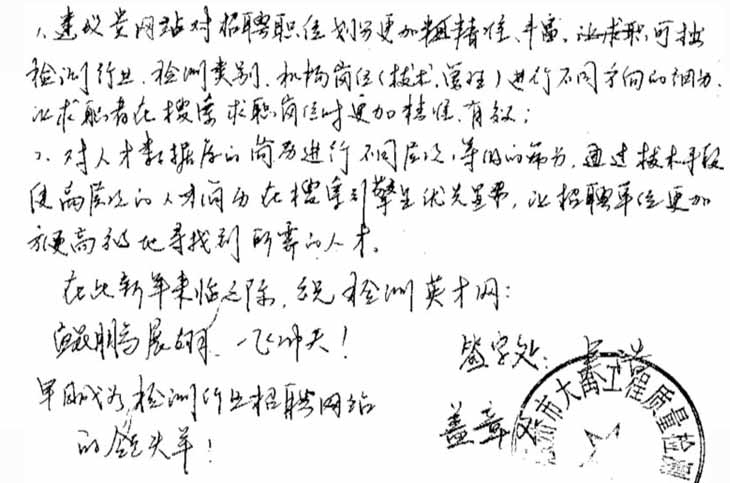 1、建议贵网站对招聘职位划分更加精准、丰富,让求职可按
检测行业、检测类别、机构岗位(技术、管理)进行不同方向的细分,
让求职者在搜索求职岗位时更加精准、有效;
2、对人才数据库的简历进行不同层次、等级的细分,通过技术手段
使高层次的人才简历在搜索引擎上优先显示,让招聘单位更加
方便高效地寻找到所需的人才。
在此新年来临之际,祝检测英才网:
鲲鹏展翅,一飞冲天!
早日成为检测行业招聘网站
的领头羊!
签字处:
盖章处:
市大禹工程质量检测